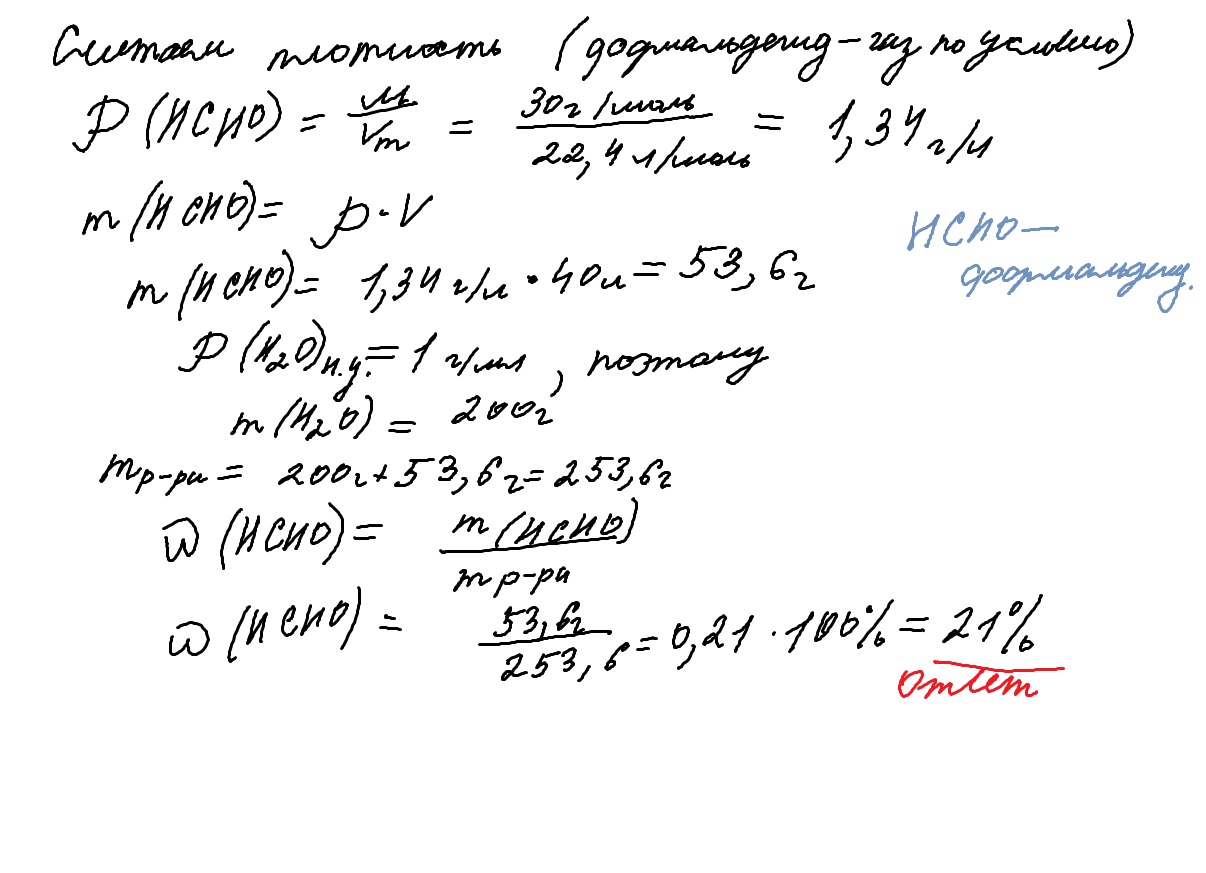 Считаем плотность (формальдегид – газ по условию)
ρ (HCHO) = M/Vm = 30г/моль / 22,4 л/моль = 1,34 г/л
m (HCHO) = ρ · V
HCHO —
формальдегид.
m (HCHO) = 1,34 г/л · 40л = 53,6г
ρ (H₂O)н.у. = 1 г/мл, поэтому
m (H₂O) = 200г
mр-ра = 200г + 53,6г = 253,6г
ω (HCHO) = m (HCHO) / m р-ра
ω (HCHO) = 53,6г / 253,6 = 0,21 · 100% = 21%
Ответ